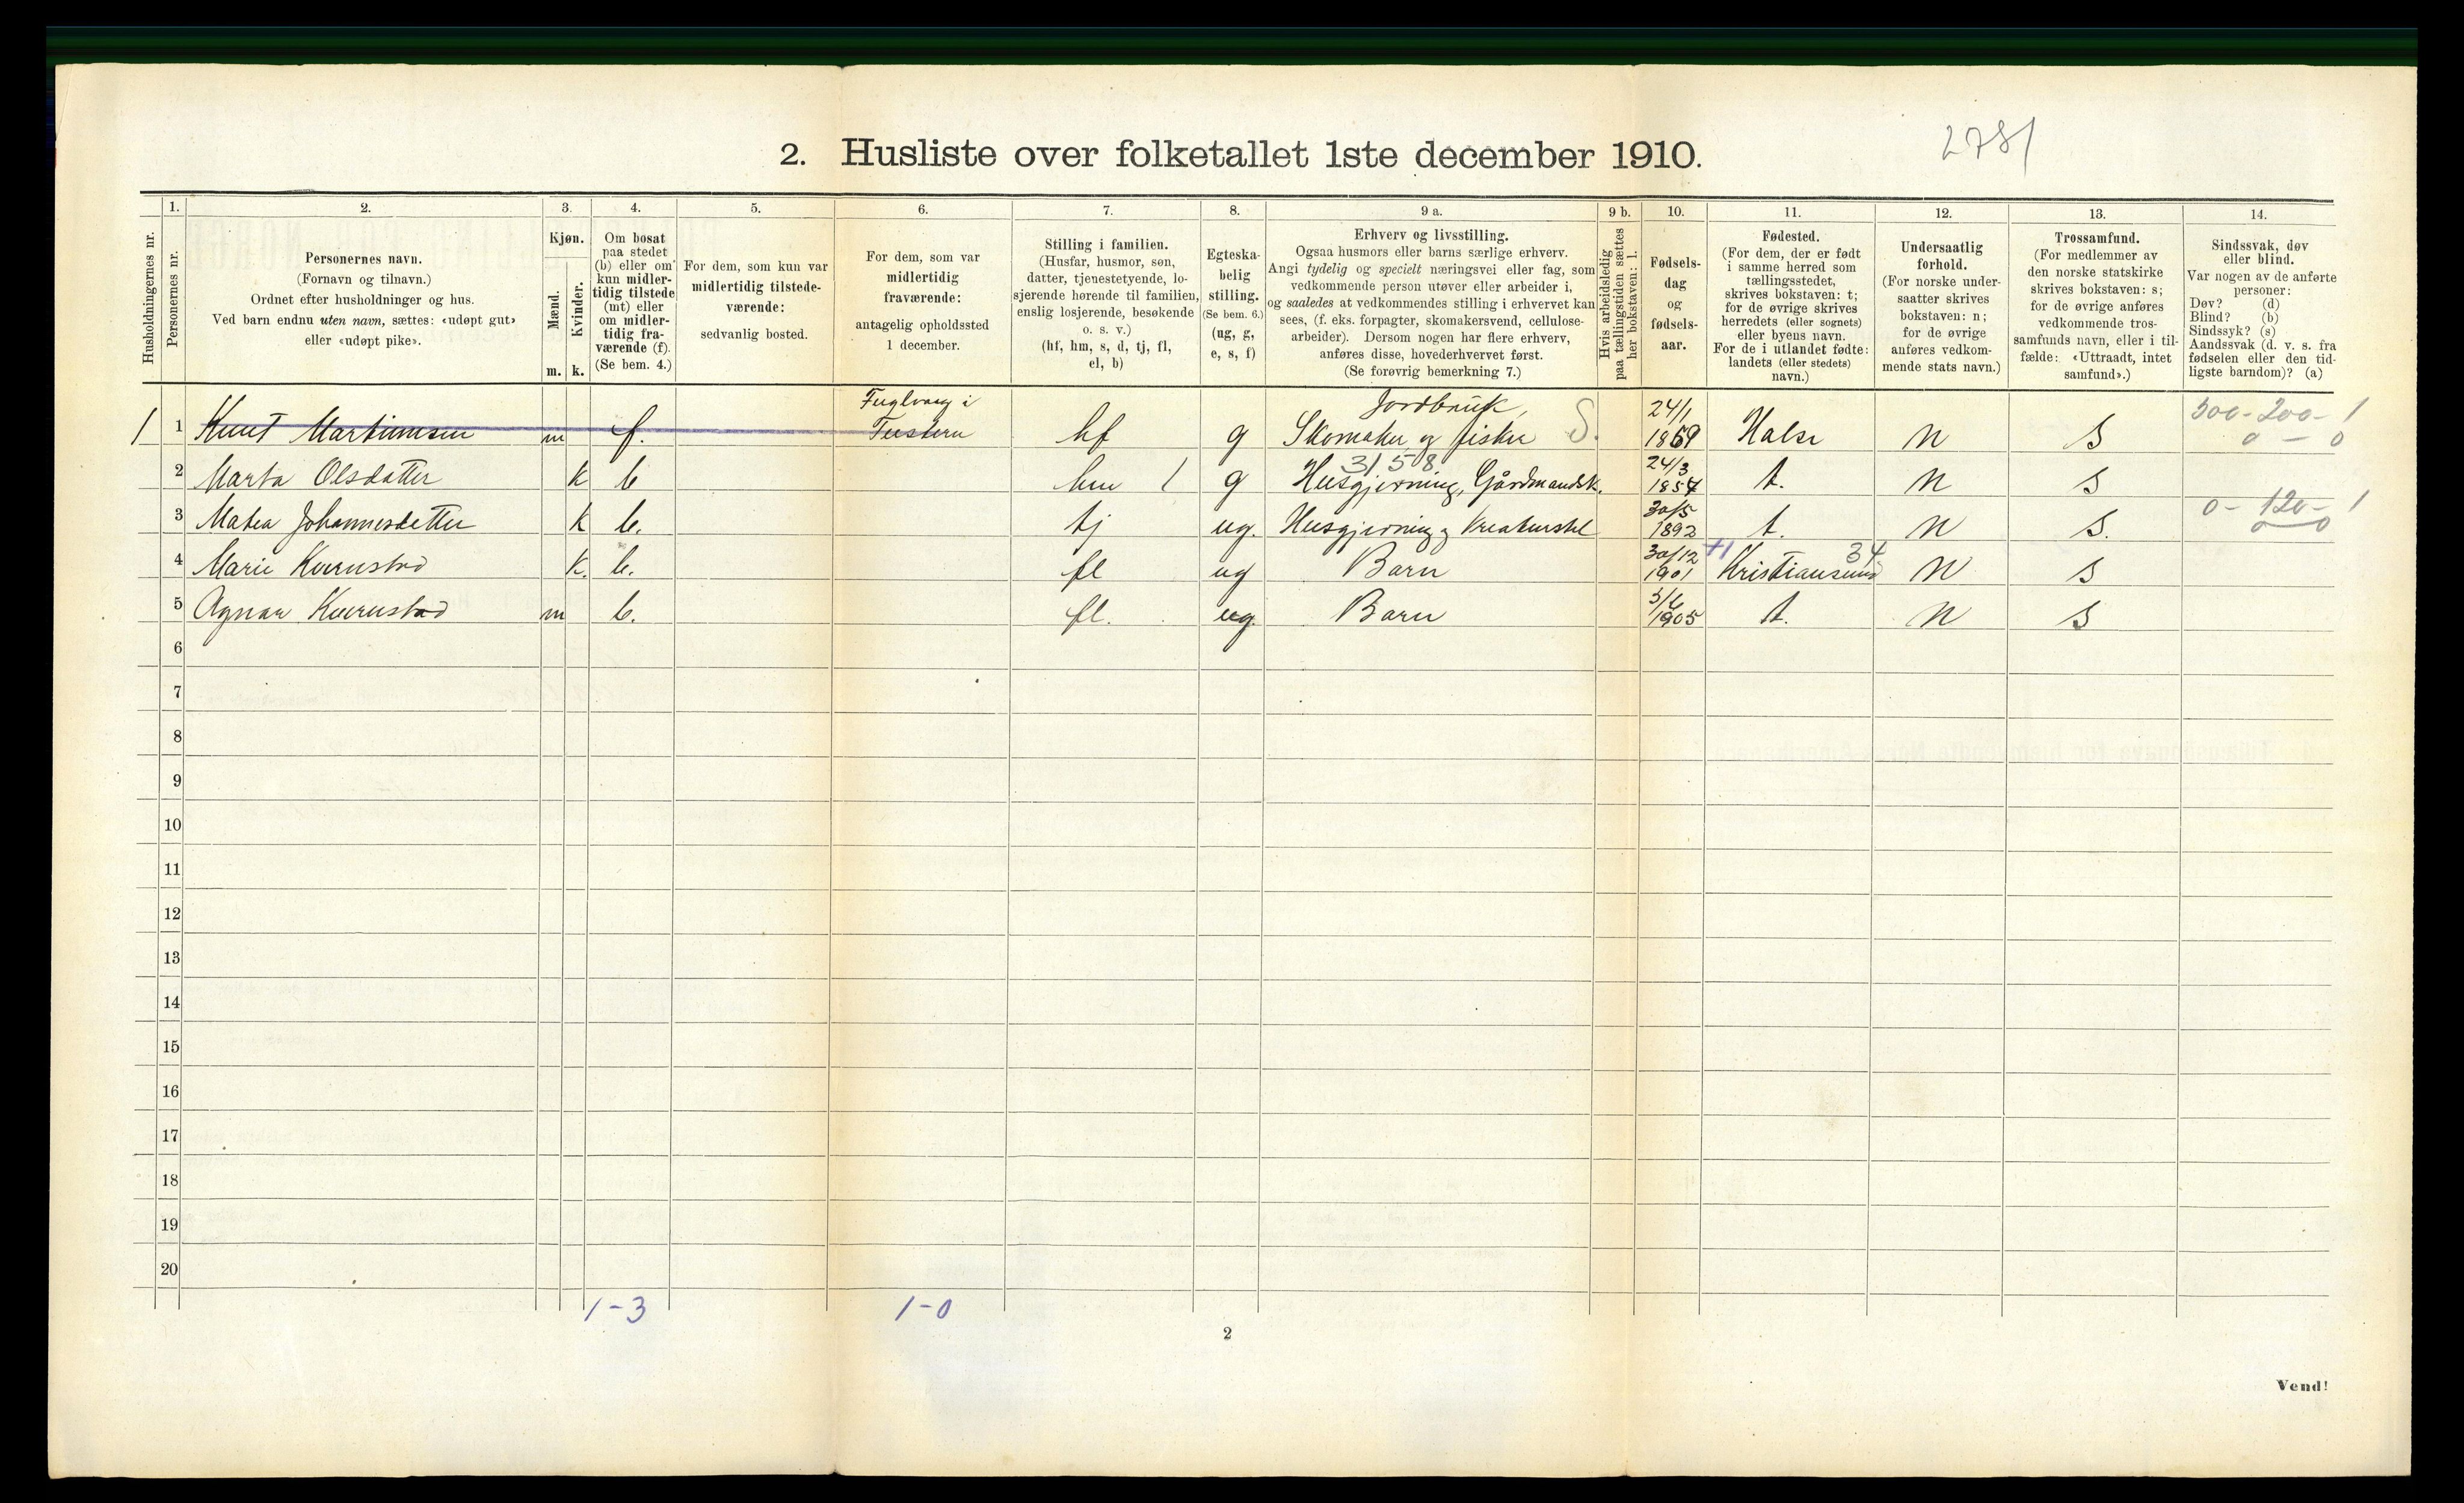 2781
2. Husliste over folketallet 1ste december 1910.
Husholdningernes nr.
1.
Personernes nr.
2.
Personernes navn.
(Fornavn og tilnavn.)
Ordnet efter husholdninger og hus.
Ved barn endnu uten navn, sættes: «udøpt gut»
eller «udøpt pike».
3.
Kjøn.
Mænd.
Kvinder.
m. k.
4.
Om bosat
paa stedet
(b) eller om
kun midler-
tidig tilstede
(mt) eller
om midler-
tidig fra-
værende (f).
(Se bem. 4.)
5.
For dem, som kun var
midlertidig tilstede-
værende:
sedvanlig bosted.
6.
For dem, som var
midlertidig
fraværende:
antagelig opholdssted
1 december.
7.
Stilling i familien.
(Husfar, husmor, søn,
datter, tjenestetyende, lo-
sjerende hørende til familien,
enslig losjerende, besøkende
o. s. v.)
(hf, hm, s, d, tj, fl,
el, b)
8.
Egteska-
belig
stilling.
(Se bem. 6.)
(ug, g,
e, s, f)
9 a.
Erhverv og livsstilling.
Ogsaa husmors eller barns særlige erhverv.
Angi tydelig og specielt næringsvei eller fag, som
vedkommende person utøver eller arbeider i,
og saaledes at vedkommendes stilling i erhvervet kan
sees, (f. eks. forpagter, skomakersvend, cellulose-
arbeider). Dersom nogen har flere erhverv,
anføres disse, hovederhvervet først.
(Se forøvrig bemerkning 7.)
9 b.
Hvis arbeidsledig
paa tællingstiden sættes
her bokstaven: l.
10.
Fødsels-
dag
og
fødsels-
aar.
11.
Fødested.
(For dem, der er født
i samme herred som
tællingsstedet,
skrives bokstaven: t;
for de øvrige skrives
herredets (eller sognets)
eller byens navn.
For de i utlandet fødte:
landets (eller stedets)
navn.)
12.
Undersaatlig
forhold.
(For norske under-
saatter skrives
bokstaven: n;
for de øvrige
anføres vedkom-
mende stats navn.)
13.
Trossamfund.
(For medlemmer av
den norske statskirke
skrives bokstaven: s;
for de øvrige anføres
vedkommende tros-
samfunds navn, eller i til-
fælde: «Uttraadt, intet
samfund».)
14.
Sindssvak, døv
eller blind.
Var nogen av de anførte
personer:
Døv? (d)
Blind? (b)
Sindssyk? (s)
Aandssvak (d. v. s. fra
fødselen eller den tid-
ligste barndom)? (a)
Fuglvaag i Jordbruk, 24/1 500-200-1
1 1 Knut Martinusen m f. Tustern hf g Skomaker og fisker S. 1869 Halse n s 0 - 0
3158 24/3
2 Marta Olsdatter k b hm 1 g Husgjerning, Gårdmandsk. 1854 t. n s
30/5 0-120-1
3 Matea Johannesdatter k b. tj ug. Husgjerning og kreaturstel 1892 t. n s. 0 0
30/12 +1 34
4 Marie Kvernstad k. b. fl ug Barn 1901 Kristiansund n s
3/6
5 Agnar Kvernstad m b. fl. ug. Barn 1905 t. n s
6
7
8
9
10
11
12
13
14
15
16
17
18
19
20
1-3 1-0
2
Vend!